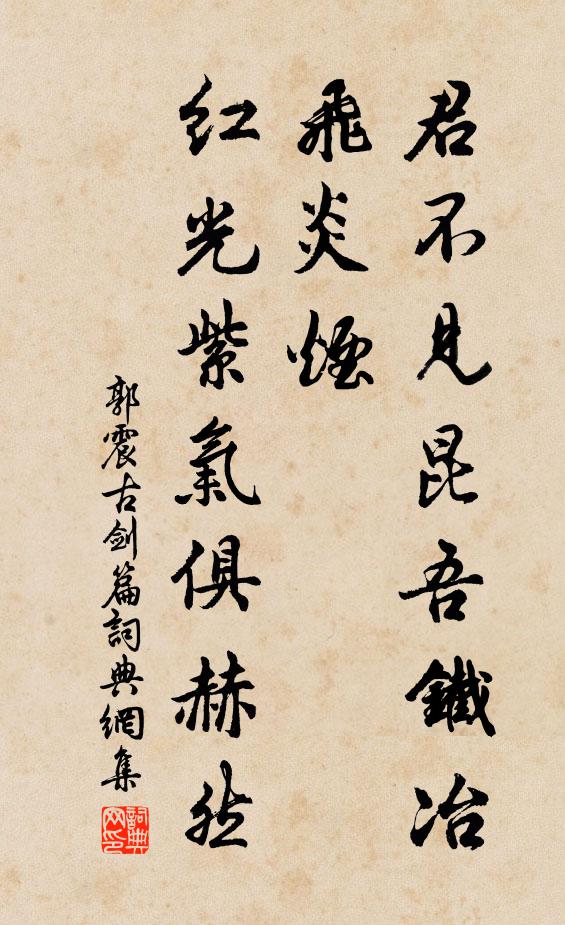 君不見昆吾鐵冶
飛炎煙
紅光紫氣俱赫然
郭震古劍篇詞典網集
詞典網印